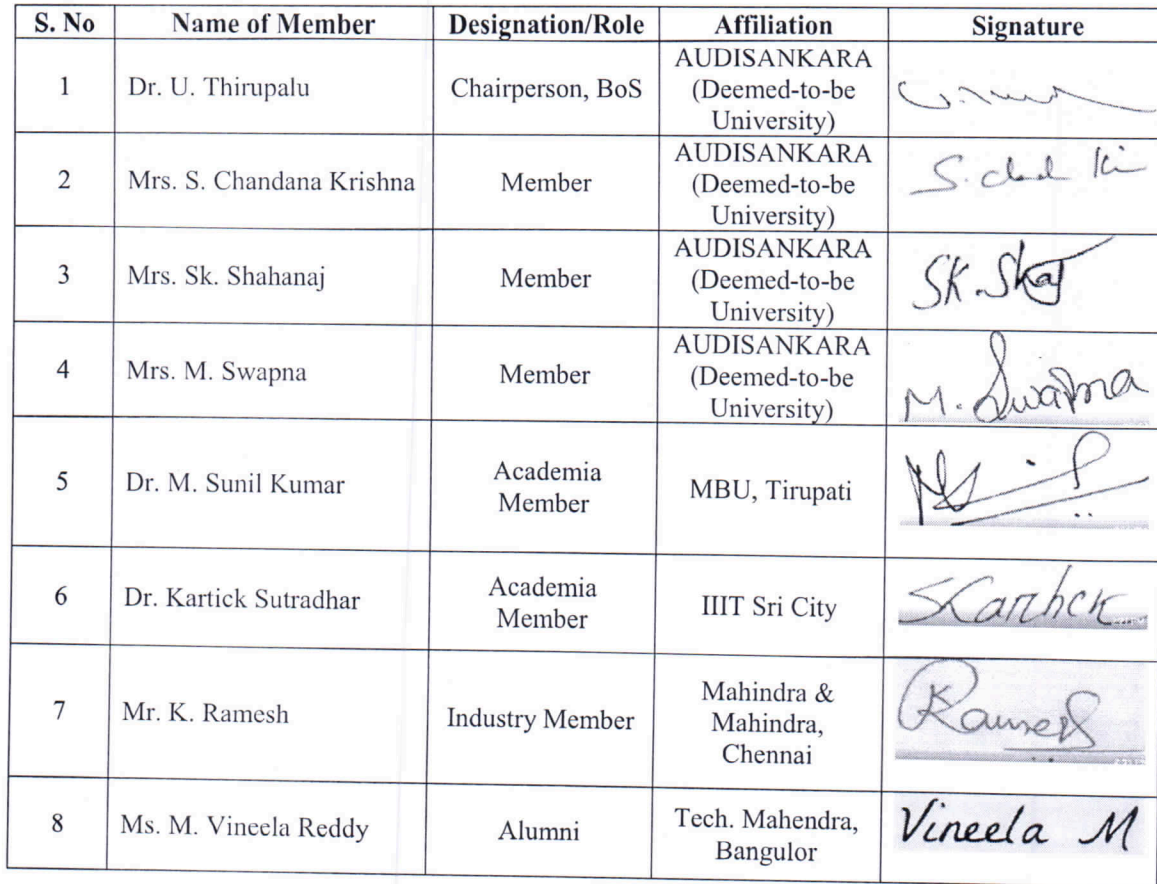 S. No Name of Member Designation/Role Affiliation Signature
1 Dr. U. Thirupalu Chairperson, BoS AUDISANKARA
(Deemed-to-be
University)
2 Mrs. S. Chandana Krishna Member AUDISANKARA
(Deemed-to-be
University)
S.
3 Mrs. Sk. Shahanaj Member AUDISANKARA
(Deemed-to-be
University)
SK.
4 Mrs. M. Swapna Member AUDISANKARA
(Deemed-to-be
University)
M. Swapna
5 Dr. M. Sunil Kumar Academia
Member
MBU, Tirupati
6 Dr. Kartick Sutradhar Academia
Member
IIIT Sri City
7 Mr. K. Ramesh Industry Member Mahindra &
Mahindra,
Chennai
K Ramesh
8 Ms. M. Vineela Reddy Alumni Tech. Mahendra,
Bangulor
Vineela M